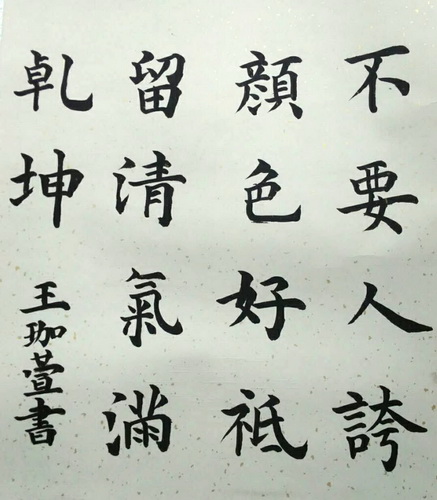 不要人誇
顏色好祗
留清氣滿
乹坤
王珈萱書